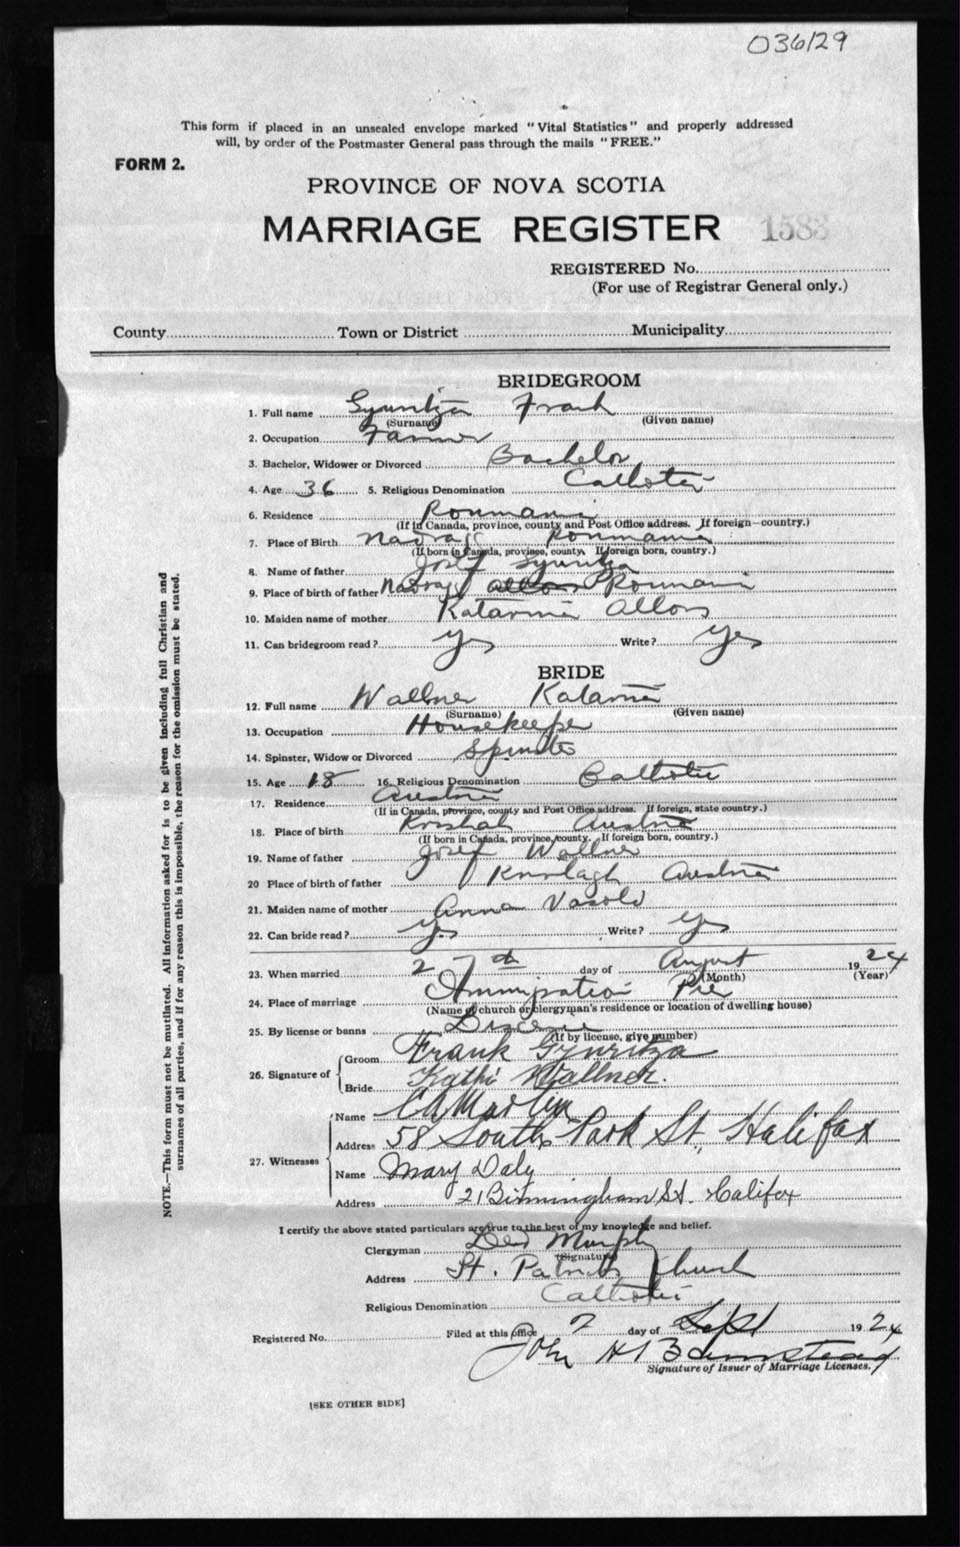 036129
This form if placed in an unsealed envelope marked "Vital Statistics" and properly addressed
will, by order of the Postmaster General pass through the mails "FREE."
FORM 2.
PROVINCE OF NOVA SCOTIA
MARRIAGE REGISTER 1583
REGISTERED No.
(For use of Registrar General only.)
County Town or District Municipality
BRIDEGROOM
1. Full name Frank
(Surname) (Given name)
2. Occupation Farmer
3. Bachelor, Widower or Divorced Bachelor
4. Age 36 5. Religious Denomination Catholic
6. Residence Roumania
(If in Canada, province, county and Post Office address. If foreign—country.)
7. Place of Birth Roumania
(If born in Canada, province, county. If foreign born, country.)
8. Name of father Josef
9. Place of birth of father Roumania
10. Maiden name of mother Katarina
11. Can bridegroom read? yes Write? yes
BRIDE
12. Full name Wallner Katarina
(Surname) (Given name)
13. Occupation Housekeeper
14. Spinster, Widow or Divorced Spinster
15. Age 18 16. Religious Denomination Catholic
17. Residence Austria
(If in Canada, province, county and Post Office address. If foreign, state country.)
18. Place of birth Austria
(If born in Canada, province, county. If foreign born, country.)
19. Name of father Josef Wallner
20 Place of birth of father Austria
21. Maiden name of mother Anna
22. Can bride read? yes Write? yes
23. When married 27th day of August 1924
(Month) (Year)
24. Place of marriage Immigration Pier
(Name of church or clergyman's residence or location of dwelling house)
25. By license or banns License
(If by license, give number)
26. Signature of
Groom Frank
Bride Kathi Wallner.
27. Witnesses
Name CA Martin
Address 58 South Park St, Halifax
Name Mary Daly
Address 21 Birmingham St. Halifax
I certify the above stated particulars are true to the best of my knowledge and belief.
Clergyman Murphy
(Signature)
Address St. Patricks Church
Religious Denomination Catholic
Registered No. Filed at this office 2 day of Sept 1924
John H Barnstead
Signature of Issuer of Marriage Licenses.
[SEE OTHER SIDE]
NOTE.—This form must not be mutilated. All information asked for is to be given including full Christian and
surnames of all parties, and if for any reason this is impossible, the reason for the omission must be stated.